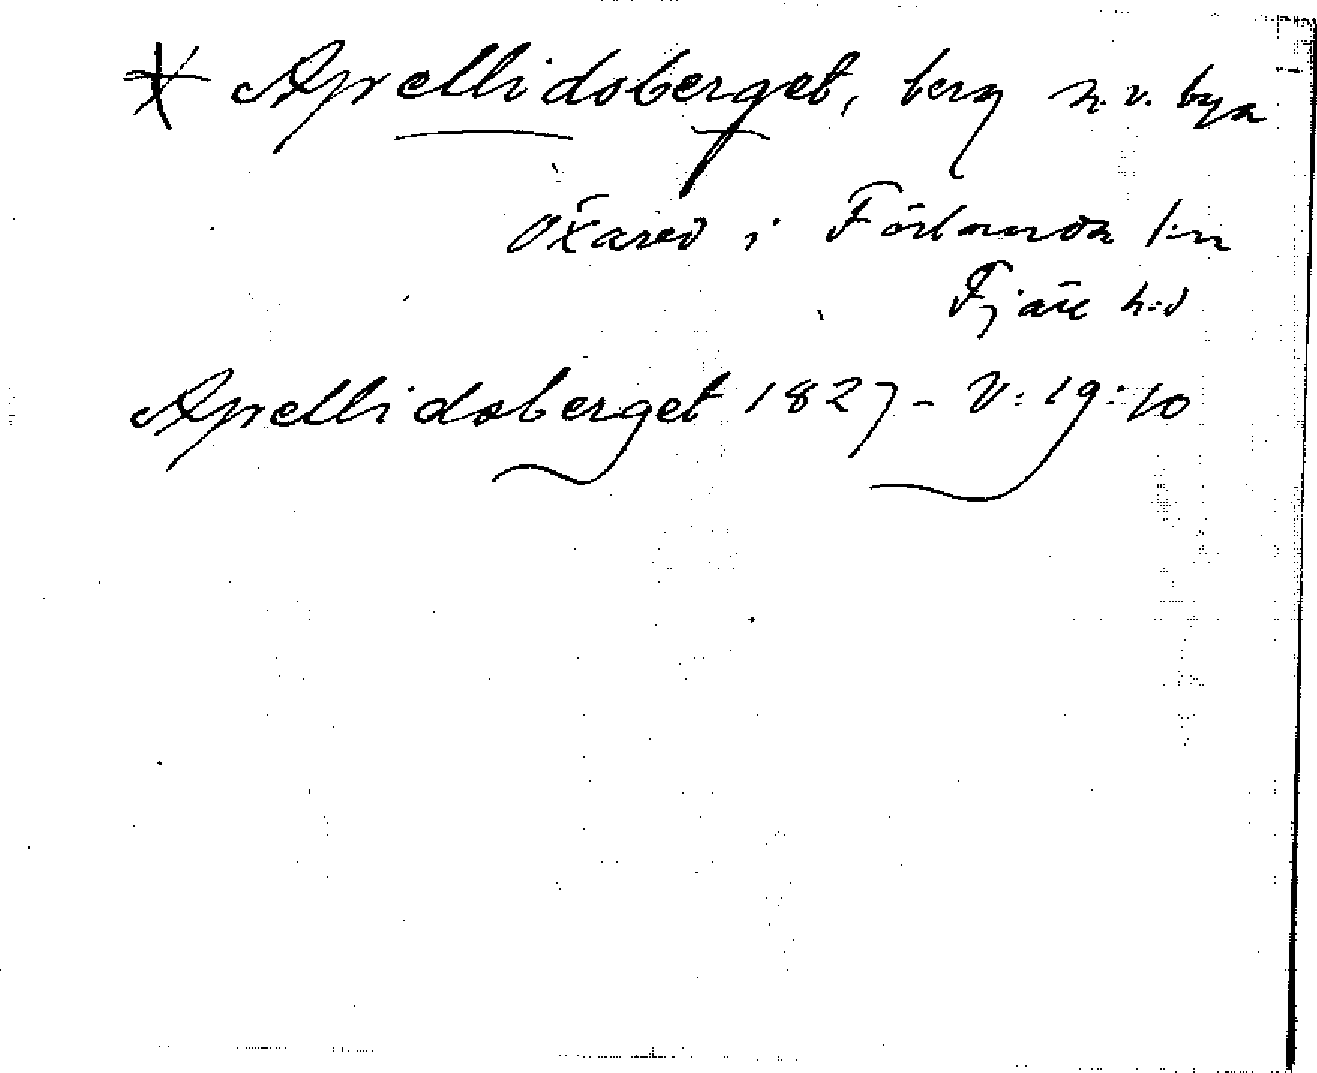 * Apellidsberget, berg n.v. byn
Oxared i Förlanda sn
Fjäre hd
Apellidsberget 1827 - V: 19:10